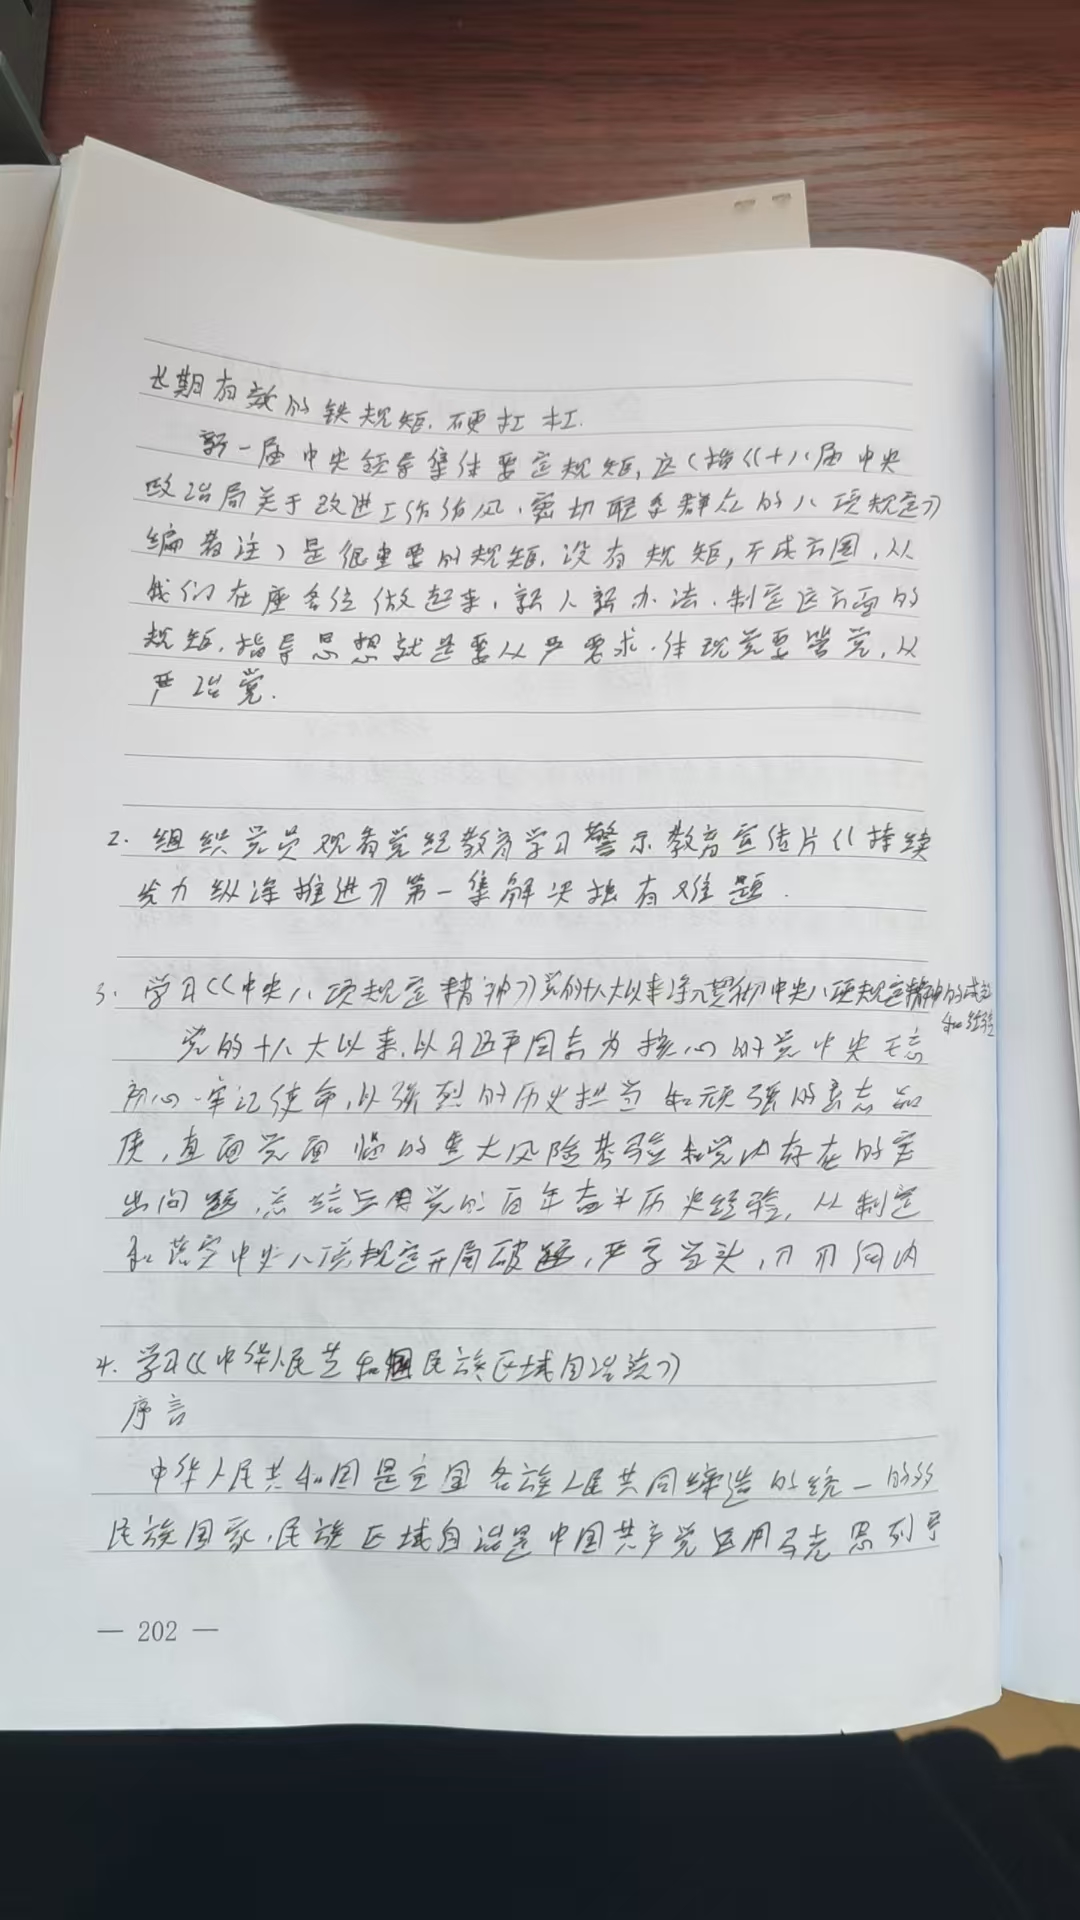 长期有效的铁规矩、硬杠杠.
新一届中央领导集体要定规矩,这(指《十八届中央
政治局关于改进工作作风、密切联系群众的八项规定》
编者注)是很重要的规矩,没有规矩,不成方圆,从
我们在座各位做起来,新人新办法.制定这方面的
规矩,指导思想就是要从严要求.体现党要管党,从
严治党.
2. 组织党员观看党纪教育学习警示教育宣传片《持续
发力 纵深推进》第一集解决独有难题.
3. 学习《中央八项规定精神》党的十八大以来深入贯彻中央八项规定精神的成效
和经验
党的十八大以来,以习近平同志为核心的党中央不忘
初心、牢记使命,以强烈的历史担当和顽强的意志品
质,直面党面临的重大风险考验和党内存在的突
出问题,总结运用党的百年奋斗历史经验,从制定
和落实中央八项规定开局破题,严字当头,刀刃向内
4. 学习《中华人民共和国民族区域自治法》
序言
中华人民共和国是全国各族人民共同缔造的统一的多
民族国家.民族区域自治是中国共产党运用马克思列宁
— 202 —